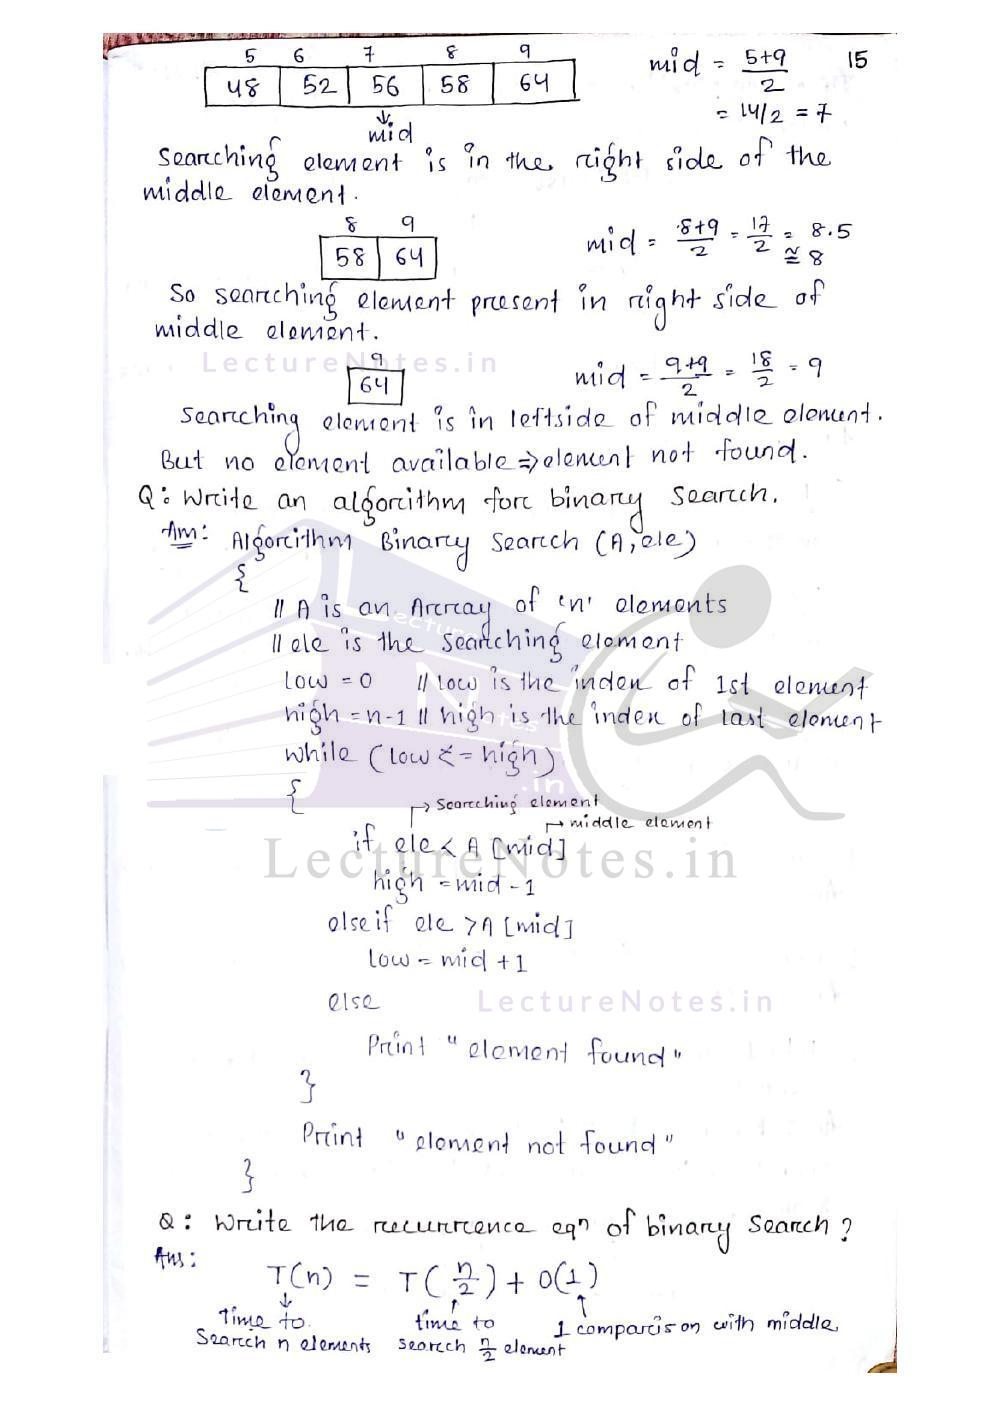 5 6 7 8 9
48 52 56 58 64
mid = 5+9/2 15
= 14/2 = 7
mid
Searching element is in the right side of the
middle element.
8 9
58 64
mid = 8+9/2 = 17/2 = 8.5
≅ 8
So searching element present in right side of
middle element.
LectureNotes.in
9
64
mid = 9+9/2 = 18/2 = 9
Searching element is in leftside of middle element.
But no element available ⇒ element not found.
Q: Write an algorithm for binary Search.
Ans: Algorithm Binary Search (A, ele)
{
// A is an Array of 'n' elements
// ele is the Searching element
low = 0 // low is the index of 1st element
high = n-1 // high is the index of last element
while (low <= high)
{
→ Searching element
→ middle element
if ele < A [mid]
LectureNotes.in
high = mid - 1
else if ele > A [mid]
low = mid + 1
else
LectureNotes.in
Print "element found"
}
Print "element not found"
}
Q: Write the recurrence eqn of binary Search?
Ans:
T(n) = T(n/2) + O(1)
time to time to 1 comparison with middle
Search n elements search n/2 element